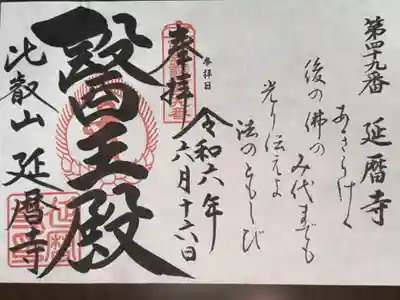 第四十九番 延暦寺
あきらけく
後の佛の
み代までも
光り伝えよ
法のともしび
参拝日
令和六年
六月十六日
奉拝
醫王殿
比叡山 延暦寺